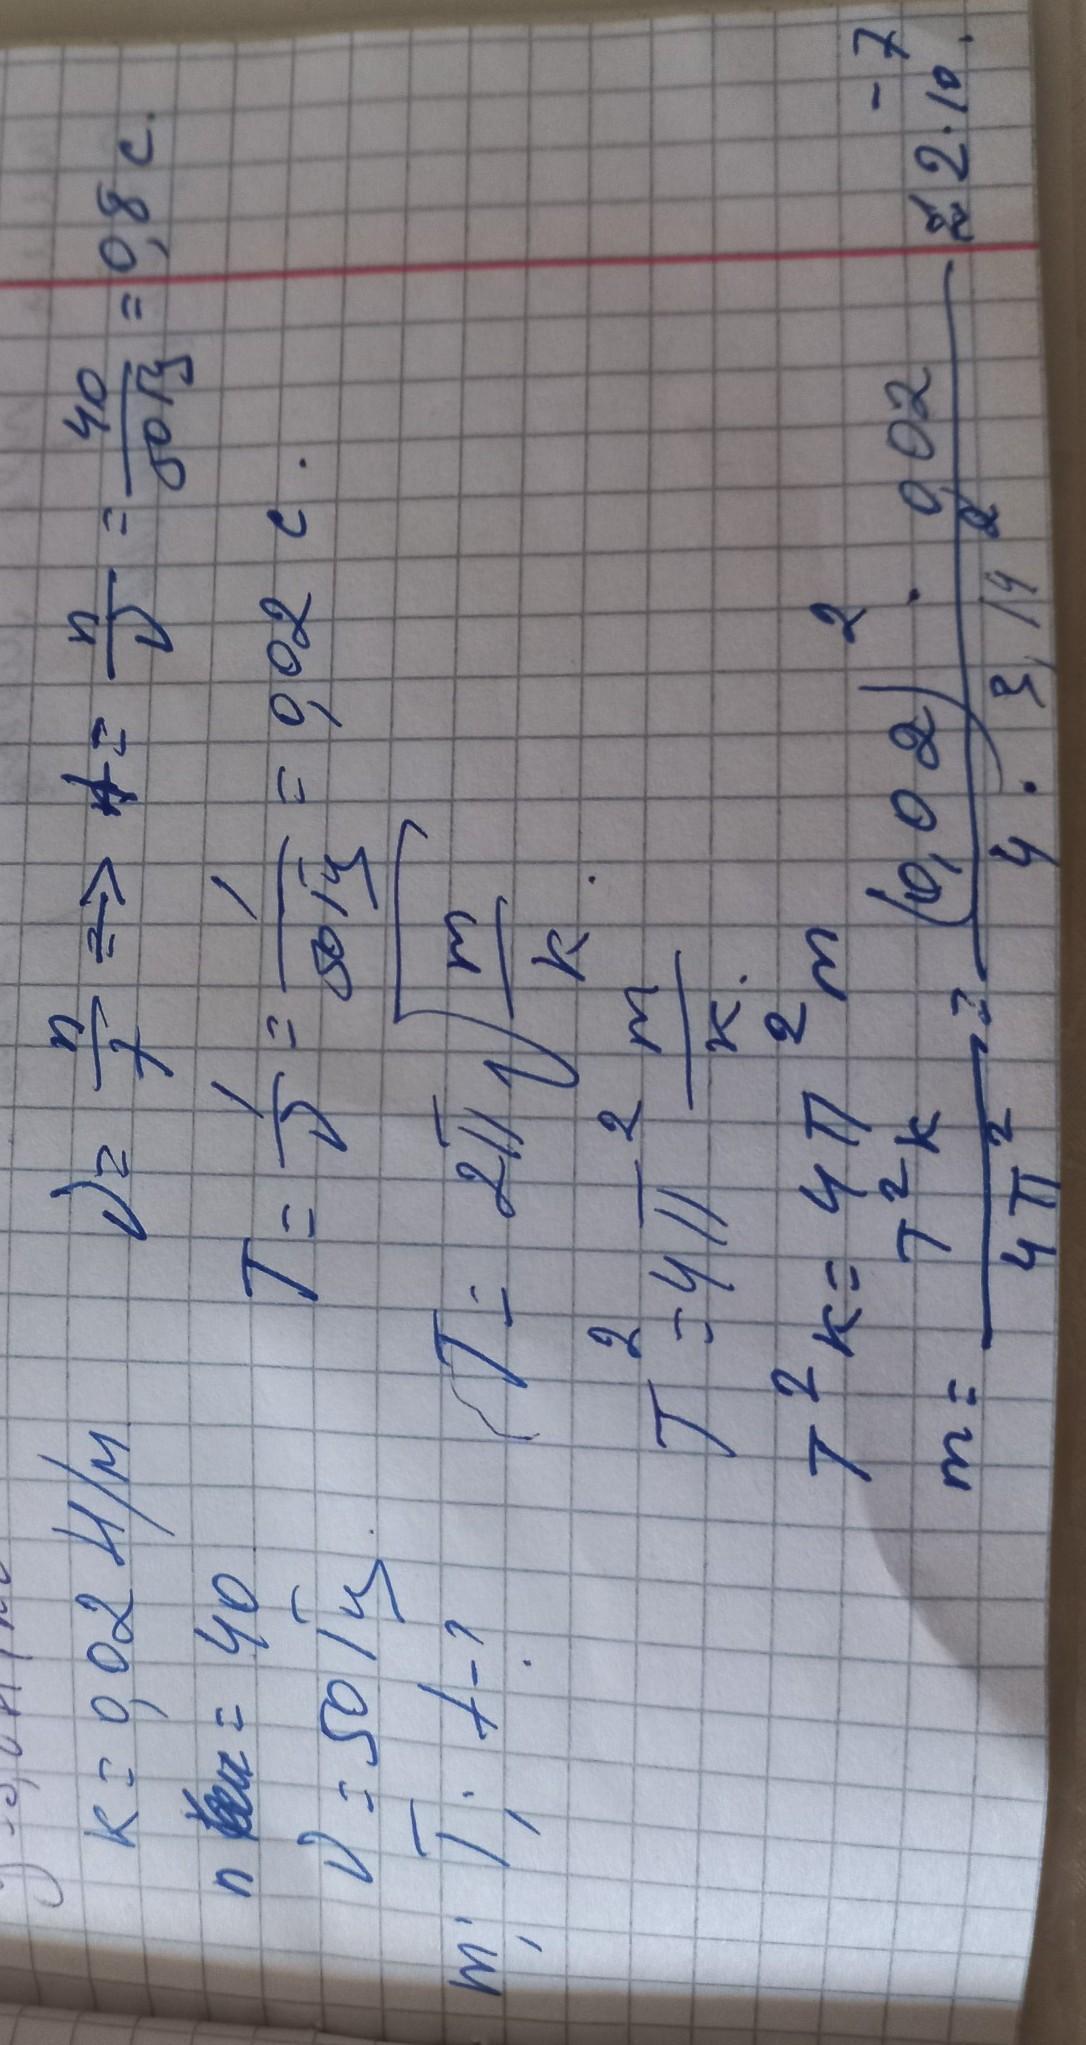 k = 0,02 Н/м
n = 40
ν = 50 Гц.
m; T; t-?
ν = n/t => t = n/ν = 40/50 Гц = 0,8 с.
T = 1/ν = 1/50 Гц = 0,02 с.
T = 2π√(m/k).
T² = 4π² m/k.
T²k = 4π²m
m = T²k/4π² = (0,02)² · 0,02/4 · 3,14² ≈ 2·10⁻⁷.